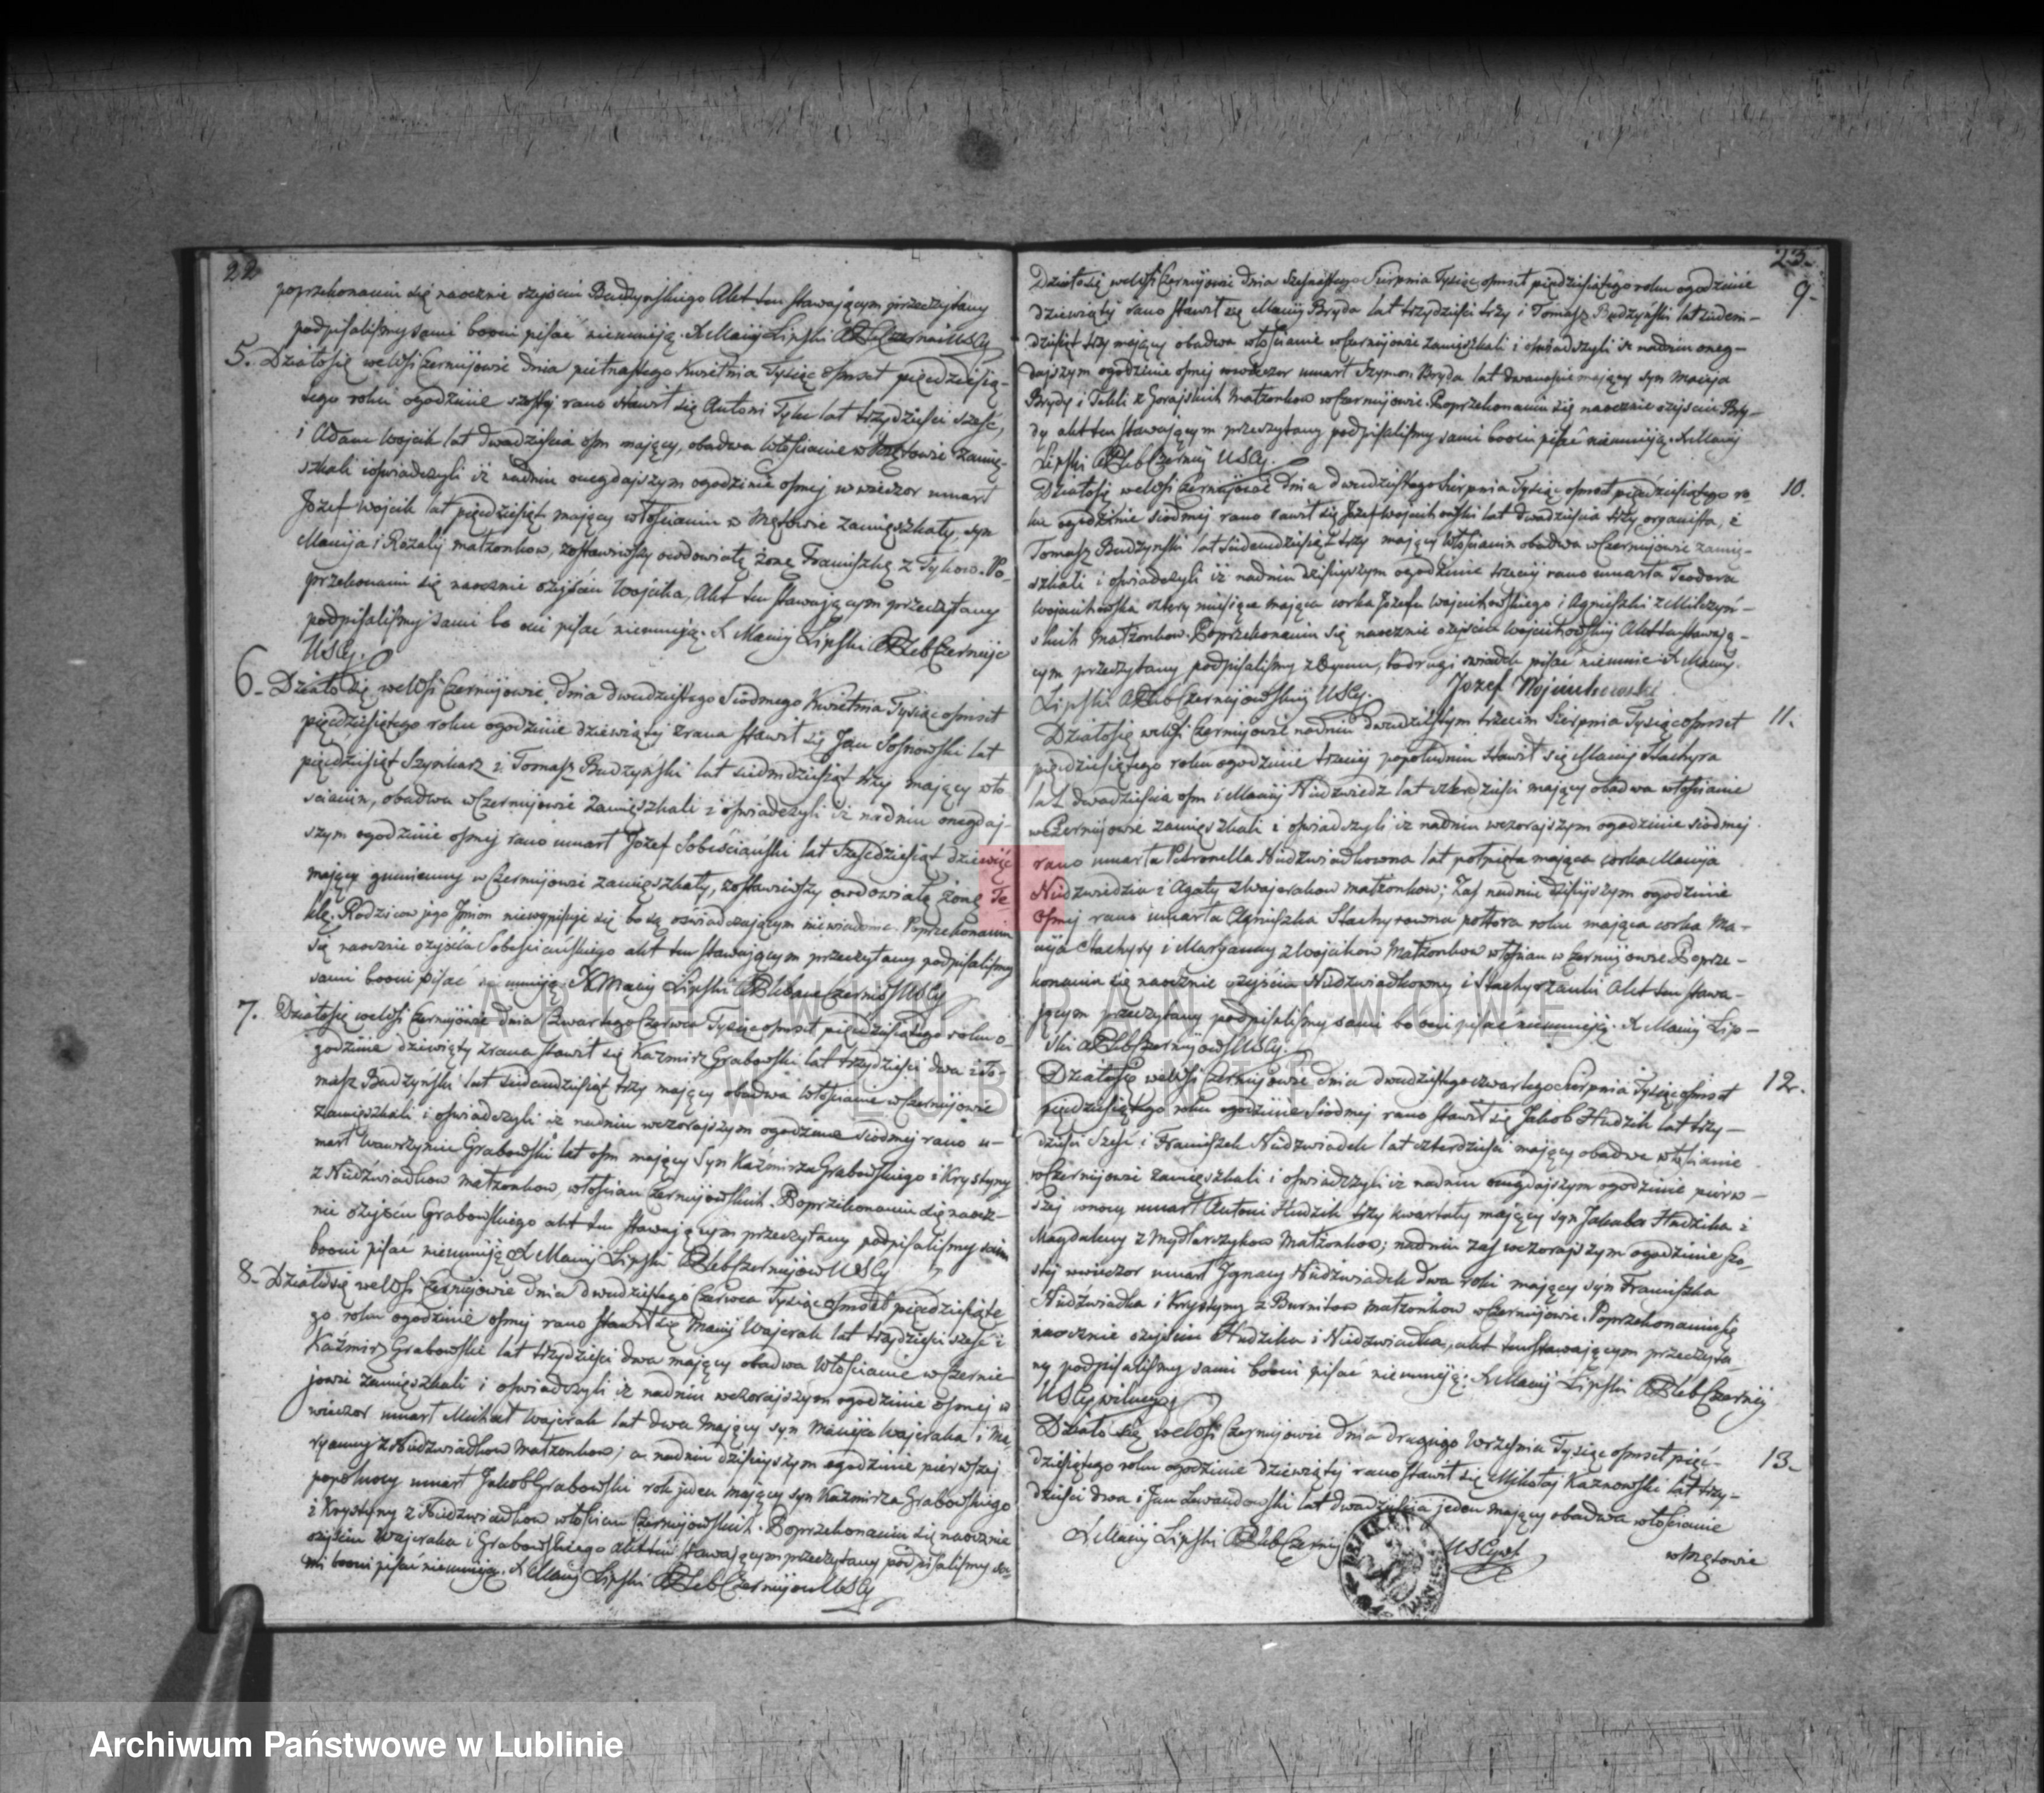 22
poprzekonaniu się naocznie ozejściu Budzyńskiego Akt ten stawającym przeczytany
podpisaliśmy sami booni pisać nieumieją. X Maciej Lipski
5. Działosię wewsi Czerniiowie dnia piętnastego Kwietnia Tysiąc osmset pięćdziesią-
tego roku ogodzinie szóstej rano stawił się Antoni Tylus lat trzydzieści sześć,
i Adam Wojcik lat dwadzieścia osm mający, obadwa włościanie w Mętowie zamię-
szkali ioświadczyli iż nadniu onegdajszym ogodzinie osmej wwieczor umarł
Jozef Wojcik lat pięćdziesiąt mający włościanin w Mętowie zamięszkały, syn
Macieja i Rozalij małżonkow, zostawiwszy owdowiałę żonę Franciszkę z Tylusow. Po-
przekonaniu się naocznie ozejściu Wojcika, Akt ten stawającym przeczytany
podpisaliśmy sami bo oni pisać nieumieją. X Maciej Lipski
USCy.
6. Działo się wewsi Czerniiowie dnia dwudziestego Siodmego Kwietnia Tysiąc osmset
pięćdziesiątego roku ogodzinie dziewiątej zrana stawił się Jan Sosnowski lat
pięćdziesiąt Szynkarz i Tomasz Budzyński lat siedmdziesiąt trzy mający wło
scianin, obadwa wCzerniiowie zamięszkali i oświadczyli iż nadniu onegdaj-
szym ogodzinie osmej rano umarł Jozef Sobiściański lat sześćdziesiąt dziewięć
mający gumienny wCzerniiowie zamięszkały, zostawiwszy owdowiałę żonę Te
klę. Rodzicow jego Imion niewypisuje się bo są oświadczającym niewiadome. Poprzekonaniu
się naocznie ozejściu Sobiściańskiego akt ten stawającym przeczytany podpisaliśmy
sami booni pisać nieumieją X Maciej Lipski
7. Działosię wewsi Czerniiowie dnia Czwartego Czerwca Tysiąc osmset pięćdziesiątego roku o-
godzinie dziewiąty zrana stawił się Kaźmirz Grabowski lat trzydzieści dwa i To-
masz Budzyński lat siedmdziesiąt trzy mający obadwa włościanie wCzerniiowie
zamięszkali i oświadczyli iż nadniu wczorajszym ogodzinie siodmej rano u-
marł Wawrzyniec Grabowski lat osm mający Syn Kaźmirza Grabowskiego i Krystyny
z Niedzwiadkow małżonkow, włościan Czerniiowskich. Poprzekonaniu się naocz-
nie ozejściu Grabowskiego akt ten stawającym przeczytany podpisaliśmy sami
booni pisać nieumieją X Maciej Lipski
8. Działosię wewsi Czerniiowie dnia dwudziestego Czerwca Tysiąc osmset pięćdziesiąte
go roku ogodzinie osmej rano stawił się Maciej Wajcrak lat trzydzieści sześć i
Kaźmirz Grabowski lat trzydzieści dwa mający obadwa Włościanie wCzernie-
jowie zamięszkali i oświadczyli iż nadniu wczorajszym ogodzinie osmej w
wieczor umarł Michał Wajcrak lat dwa mający syn Macieja Wajcraka i Ma
ryanny z Niedzwiadkow małżonkow; a nadniu dzisiejszym ogodzinie pierwszej
popołnocy umarł Jakob Grabowski rok jeden mający syn Kaźmirza Grabowskiego
i Krystyny z Niedzwiadkow włościan Czerniiowskich. Poprzekonaniu się naocznie
ozejściu Wajcraka i Grabowskiego akt ten stawającym przeczytany podpisaliśmy sa-
mi booni pisać nieumieją. X Maciej Lipski
23.
Działo się wewsi Czerniiowie dnia Szesnastego Sierpnia Tysiąc osmset pięćdziesiątego roku ogodzinie
9.
dziewiąty rano stawił się Maciej Bryda lat trzydzieści trzy i Tomasz Budzyński lat siedm-
dziesiąt trzy mający obadwa włościanie wCzerniiowie zamięszkali i oświadczyli iż nadniu oneg-
dajszym ogodzinie osmej wwieczor umarł Szymon Bryda lat dwanaście mający syn Macieja
Brydy i Tekli z Gorajskich Małżonkow wCzerniiowie. Poprzekonaniu się naocznie ozejściu Bry-
dy akt ten stawającym przeczytany podpisaliśmy sami booni pisać nieumieją. X Maciej
Lipski USCy.
Działosię wewsi Czerniiowie dnia dwudziestego Sierpnia Tysiąc osmset pięćdziesiątego ro
10.
ku ogodzinie siodmej rano stawił się Jozef Wojciechowski lat dwadzieścia trzy organista, i
Tomasz Budzyński lat siedmdziesiąt trzy mający Włościanin obadwa wCzerniiowie zamię-
szkali i oświadczyli iż nadniu dzisiejszym ogodzinie trzeciej rano umarła Teodora
Wojciechowska cztery miesiące mająca corka Jozefa Wojciechowskiego i Agnieszki z Milczyń-
skich Małżonkow. Poprzekonaniu się naocznie ozejściu Wojciechowskiej Akt ten stawają-
cym przeczytany podpisaliśmy zBynim, bodrugi swiadek pisać nieumie X Maciej
Lipski USCy. Jozef Wojciechowski
Działosię wewsi Czerniiowie nadniu dwudziestym trzecim Sierpnia Tysiąc osmset
11.
pięćdziesiątego roku ogodzinie trzeciej popołudniu stawił się Maciej Stachyra
lat dwadzieścia osm i Maciej Niedzwiedź lat czterdzieści mający obadwa włościanie
wCzerniiowie zamięszkali i oświadczyli iż nadniu wczorajszym ogodzinie siodmej
rano umarła Petronella Niedzwiadkowna lat połpięta mająca corka Macieja
Niedzwiedzia i Agaty zWajcrakow małżonkow; Zaś nadniu dzisiejszym ogodzinie
osmej rano umarła Agnieszka Stachyrowna połtora roku mająca corka Ma-
cieja Stachyry i Maryanny zWojcikow Małżonkow włościan wCzerniiowie Poprze-
konaniu się naocznie ozejściu Niedzwiadkowny i Stachyrzanki Akt ten stawa-
jącym przeczytany podpisaliśmy sami bo oni pisać nieumieją. X Maciej Lip-
ski USCy.
Działosię wewsi Czerniiowie dnia dwudziestego czwartego Sierpnia Tysiąc osmset
12.
pięćdziesiątego roku ogodzinie Siodmej rano stawił się Jakob Hudzik lat trzy-
dzieści Sześć i Franciszek Niedzwiadek lat czterdzieści mający obadwa włościanie
wCzerniiowie zamięszkali i oświadczyli iż nadniu onegdajszym ogodzinie pierw-
szej wnocy umarł Antoni Hudzik trzy kwartały mający syn Jakuba Hudzika i
Magdaleny z Mydlarzykow Małżonkow; nadniu zaś wczorajszym ogodzinie szo-
stej wwieczor umarł Ignacy Niedzwiadek dwa roki mający syn Franciszka
Niedzwiadka i Krystyny z Burnitow małżonkow wCzerniiowie. Poprzekonaniu się
naocznie ozejściu Hudzika i Niedzwiadka, akt ten stawającym przeczyta
ny podpisaliśmy sami booni pisać nieumieją. X Maciej Lipski
USCywilnego
Działo się wewsi Czerniiowie dnia drugiego Września Tysiąc osmset pięć-
13.
dziesiątego roku ogodzinie dziewiątej rano stawił się Mikołaj Kaznowski lat trzy-
dzieści dwa i Jan Lewandowski lat dwadzieścia jeden mający obadwa włościanie
X Maciej Lipski USCywl. wMętowie
ARCHIWUM PAŃSTWOWE
W LUBLINIE
Archiwum Państwowe w Lublinie